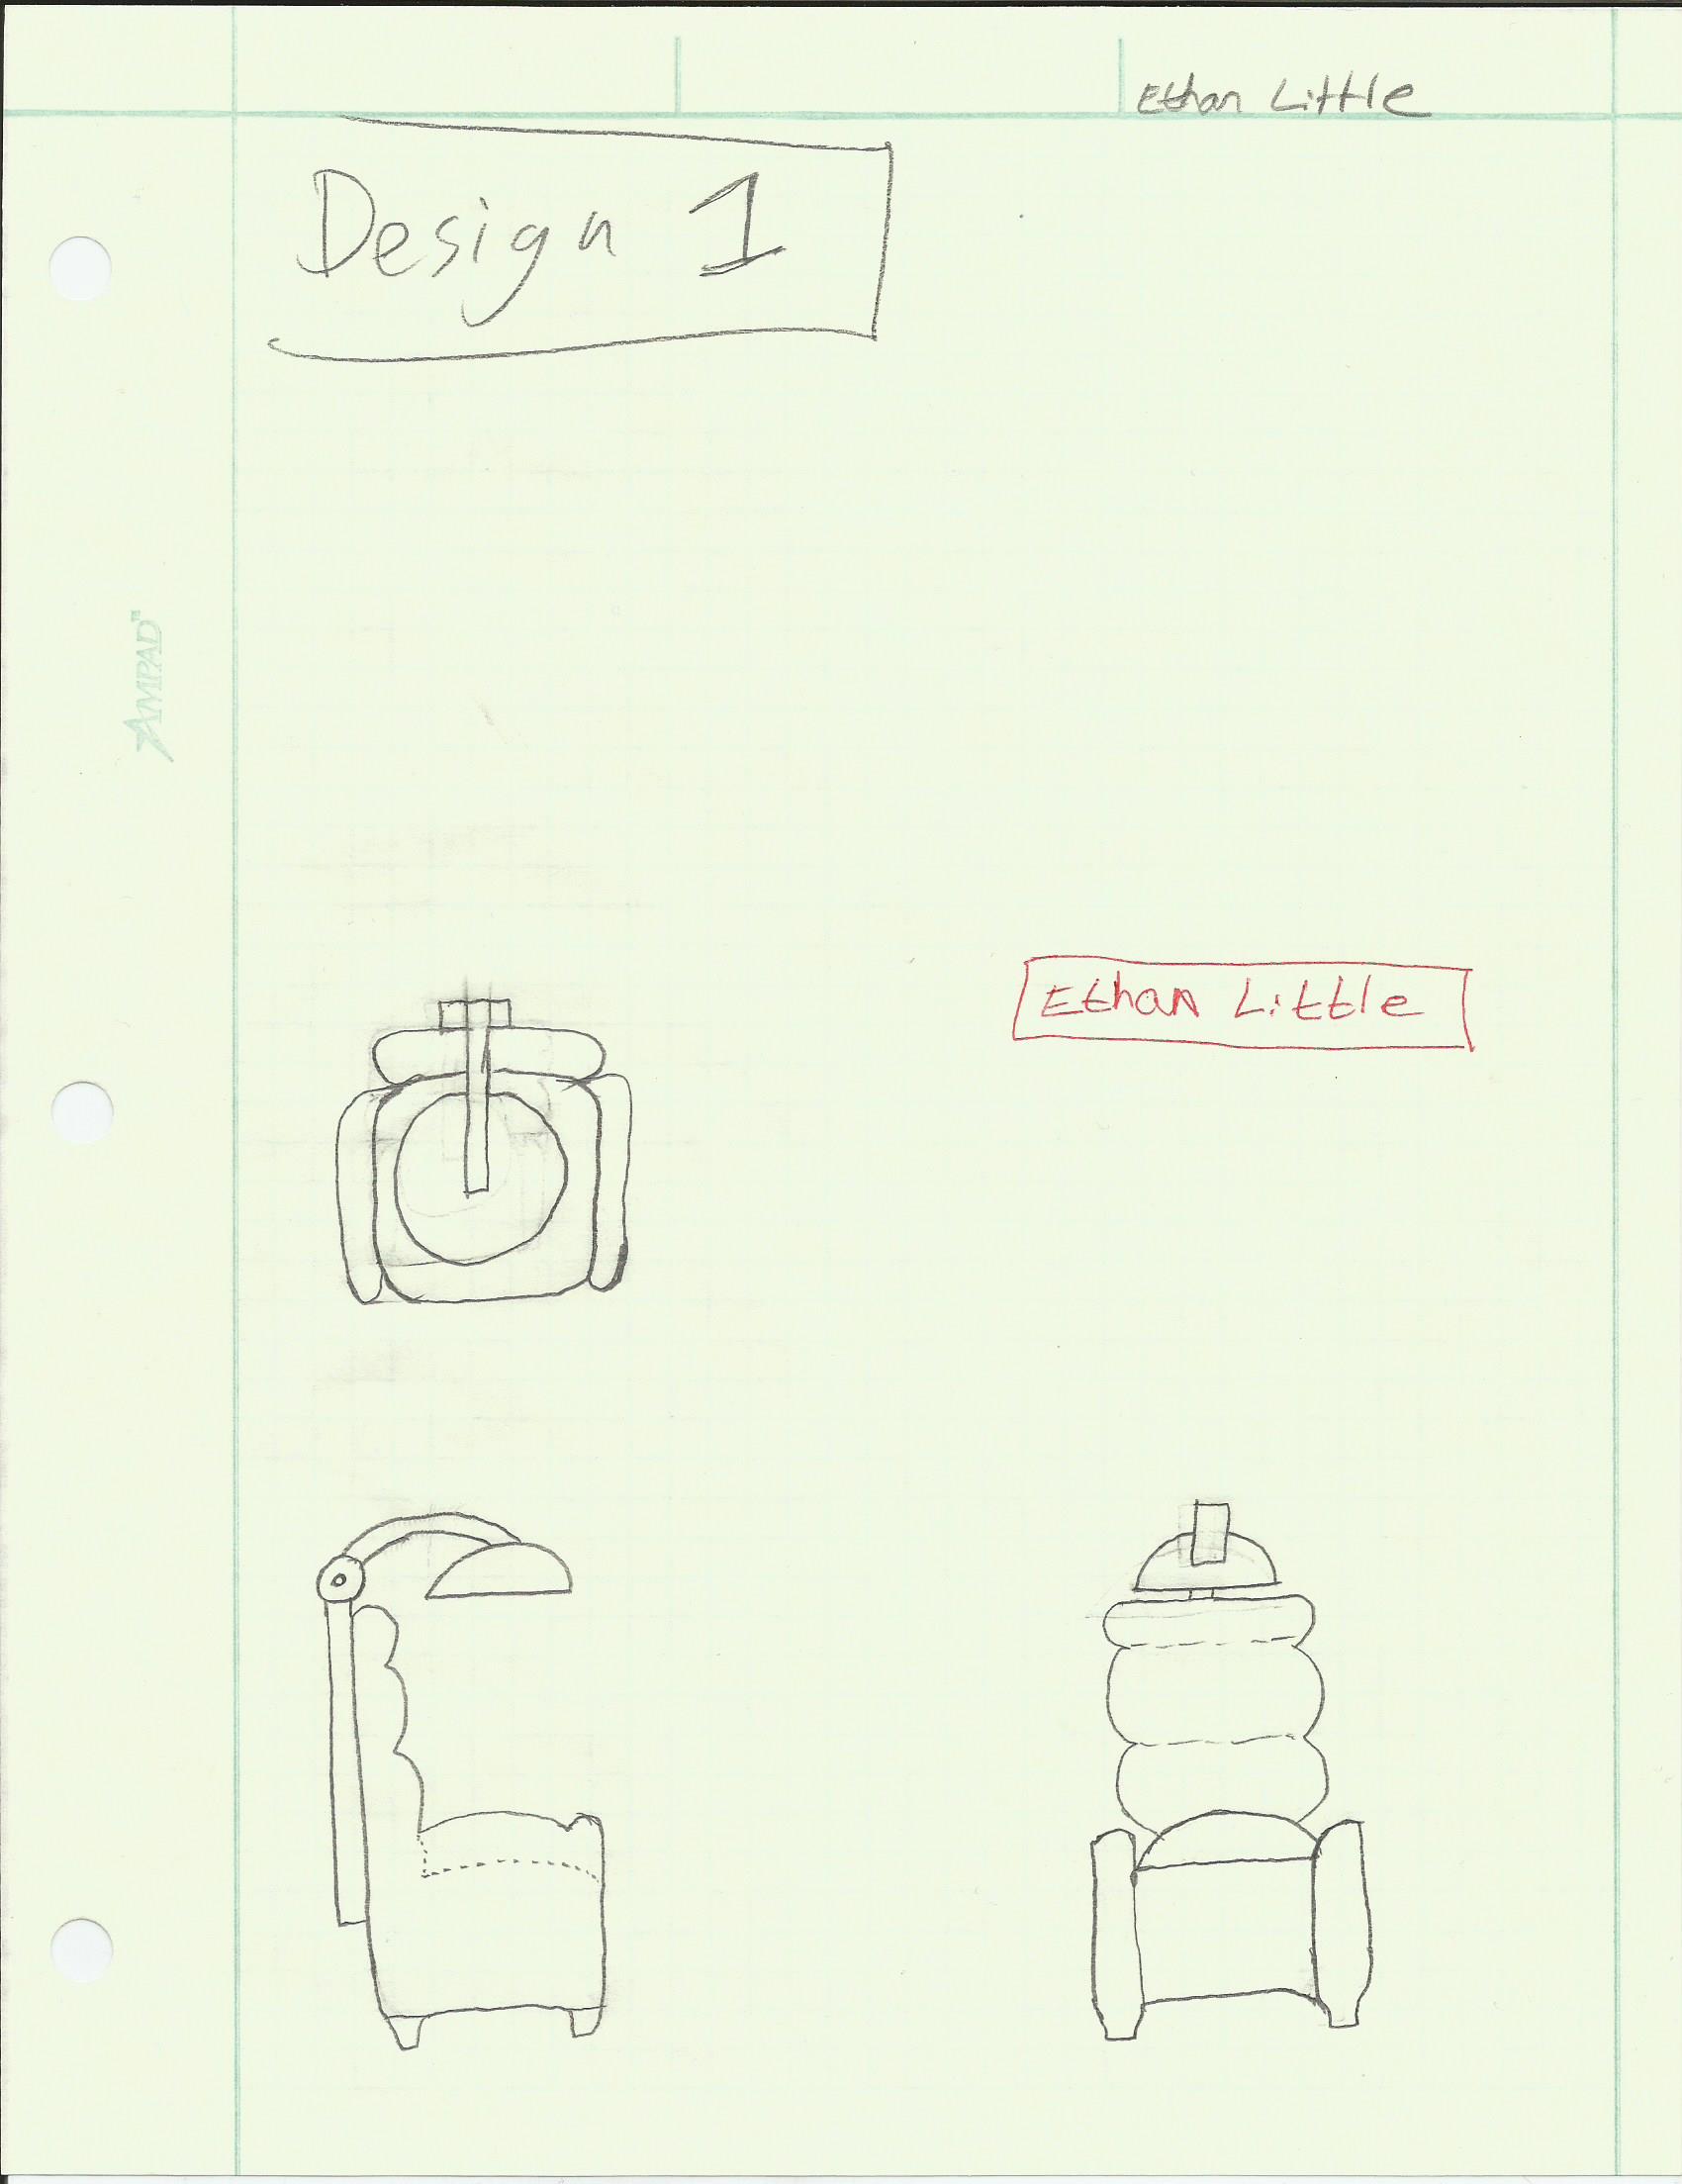 Ethan Little
Design 1
AMPAD™
Ethan Little